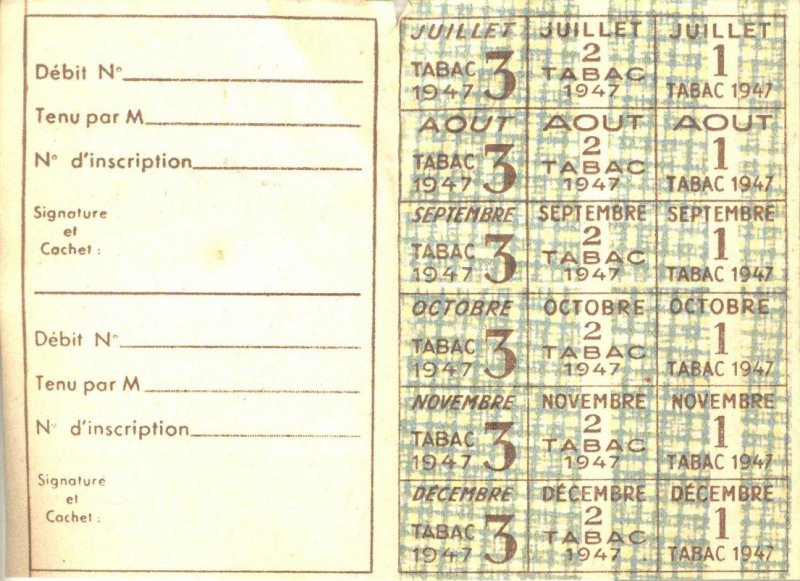 Débit N°
Tenu par M
N° d'inscription
Signature
et
Cachet :
Débit N°
Tenu par M
N° d'inscription
Signature
et
Cachet :
JUILLET
TABAC 3
1947
JUILLET
2
TABAC
1947
JUILLET
1
TABAC 1947
AOUT
TABAC 3
1947
AOUT
2
TABAC
1947
AOUT
1
TABAC 1947
SEPTEMBRE
TABAC 3
1947
SEPTEMBRE
2
TABAC
1947
SEPTEMBRE
1
TABAC 1947
OCTOBRE
TABAC 3
1947
OCTOBRE
2
TABAC
1947
OCTOBRE
1
TABAC 1947
NOVEMBRE
TABAC 3
1947
NOVEMBRE
2
TABAC
1947
NOVEMBRE
1
TABAC 1947
DÉCEMBRE
TABAC 3
1947
DÉCEMBRE
2
TABAC
1947
DÉCEMBRE
1
TABAC 1947